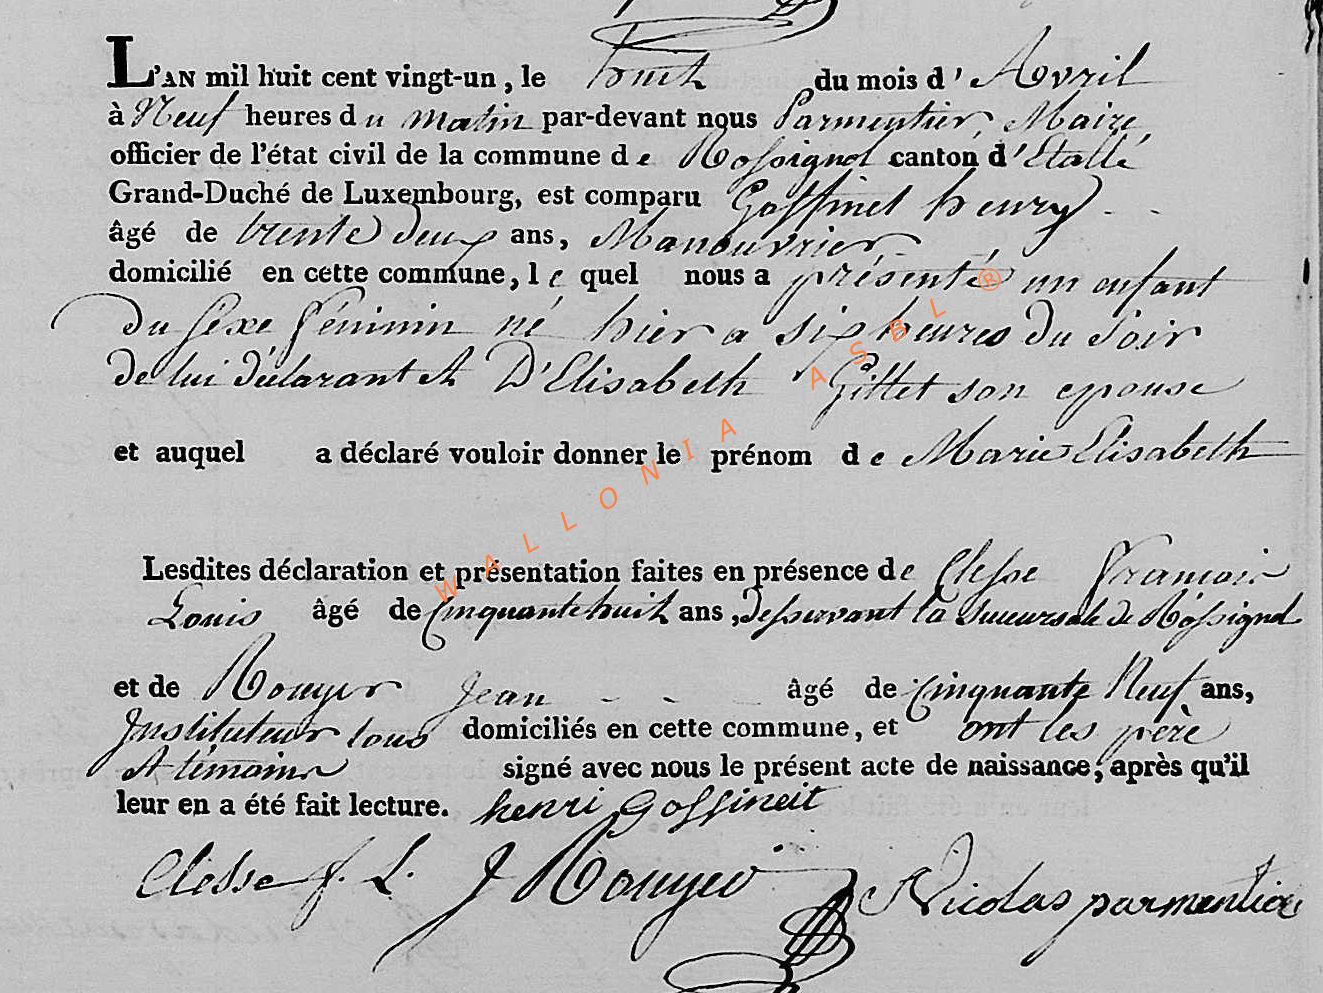 L'AN mil huit cent vingt-un, le huit du mois d'Avril
à Neuf heures du matin par-devant nous Parmentier, Maire,
officier de l'état civil de la commune de Rossignol canton d'Etalle
Grand-Duché de Luxembourg, est comparu Goffinet henry - -
âgé de trente deux ans, Manouvrier
domicilié en cette commune, le quel nous a présenté un enfant
du sexe féminin né hier a six heures du soir
de lui déclarant et D'Elisabeth Gillet son epouse
et auquel a déclaré vouloir donner le prénom de Marie Elisabeth
Lesdites déclaration et présentation faites en présence de Clesse François
Louis âgé de Cinquante huit ans, Desservant la succursale de Rossignol
et de Rouyer Jean - - - âgé de Cinquante Neuf ans,
Instituteur tous domiciliés en cette commune, et ont les père
et témoins signé avec nous le présent acte de naissance, après qu'il
leur en a été fait lecture. henri goffineit
Clesse f. L. J Rouyer Nicolas parmentier
WALLONIA ASBL ®